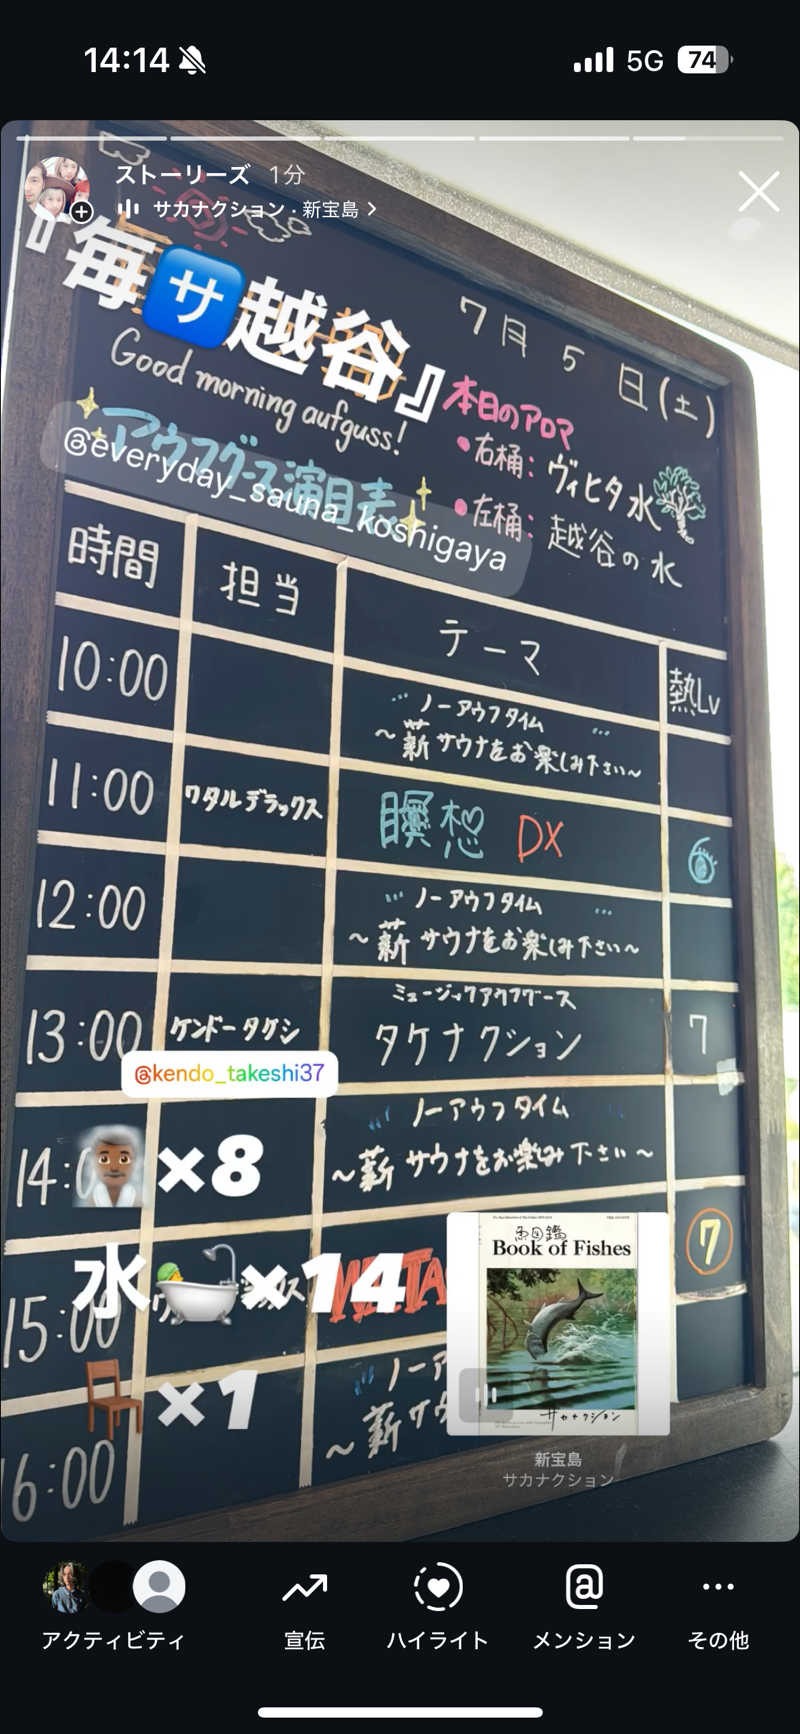 14:14
5G
74
ストーリーズ 1分
サカナクション・新宝島
『毎サ越谷』
7月5日(土)
Good morning aufguss!
アウフグース演目表
@everyday_sauna_koshigaya
本日のアロマ
•右桶: ヴィヒタ水
•左桶: 越谷の水
時間 担当 テーマ 熱Lv
10:00 ノーアウフタイム
~薪サウナをお楽しみ下さい~
11:00 ワタルデラックス 瞑想 DX
12:00 ノーアウフタイム
~薪サウナをお楽しみ下さい~
ミュージックアウフグース
13:00 ケンドータケシ タケナクション 7
@kendo_takeshi37
ノーアウフタイム
14: ~薪サウナをお楽しみ下さい~
×8
7
水 ×14
15:00
×1
~薪サウ
16:00
魚図鑑
Book of Fishes
サカナクション
新宝島
サカナクション
アクティビティ
宣伝
ハイライト
メンション
その他